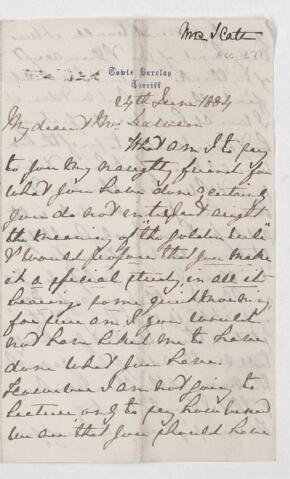 Mrs Scott
Acc. 1237
Towie Barclay
Turriff
24th June 1884
My dear Mr
What am I to say
to you my naughty friend for
what you have done? certainly
you do not interpret aright
the meaning of "the golden rule"
I would propose that you make
it a special study, in all its
bearings some quiet
for sure am I you would
not have liked me to have
done what you have.
However I am not going to
lecture only to say how vexed
we are that you should have